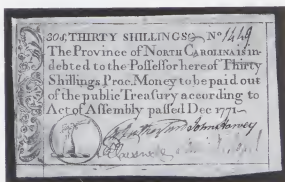 30s, THIRTY SHILLINGS No 1449
The Province of NORTH CAROLINA is in-
debted to the Possessor hereof Thirty
Shillings Proc. Money to be paid out
of the public Treasury according to
Act of Assembly passed Dec 1771
John Harvey